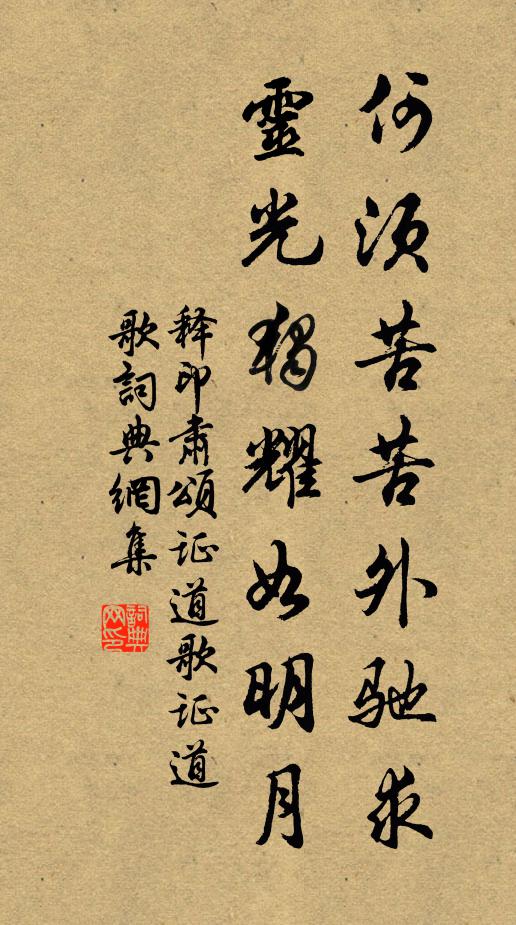 何須苦苦外馳求
靈光獨耀如明月
释印肅頌证道歌证道
歌詞典網集
詞典网印